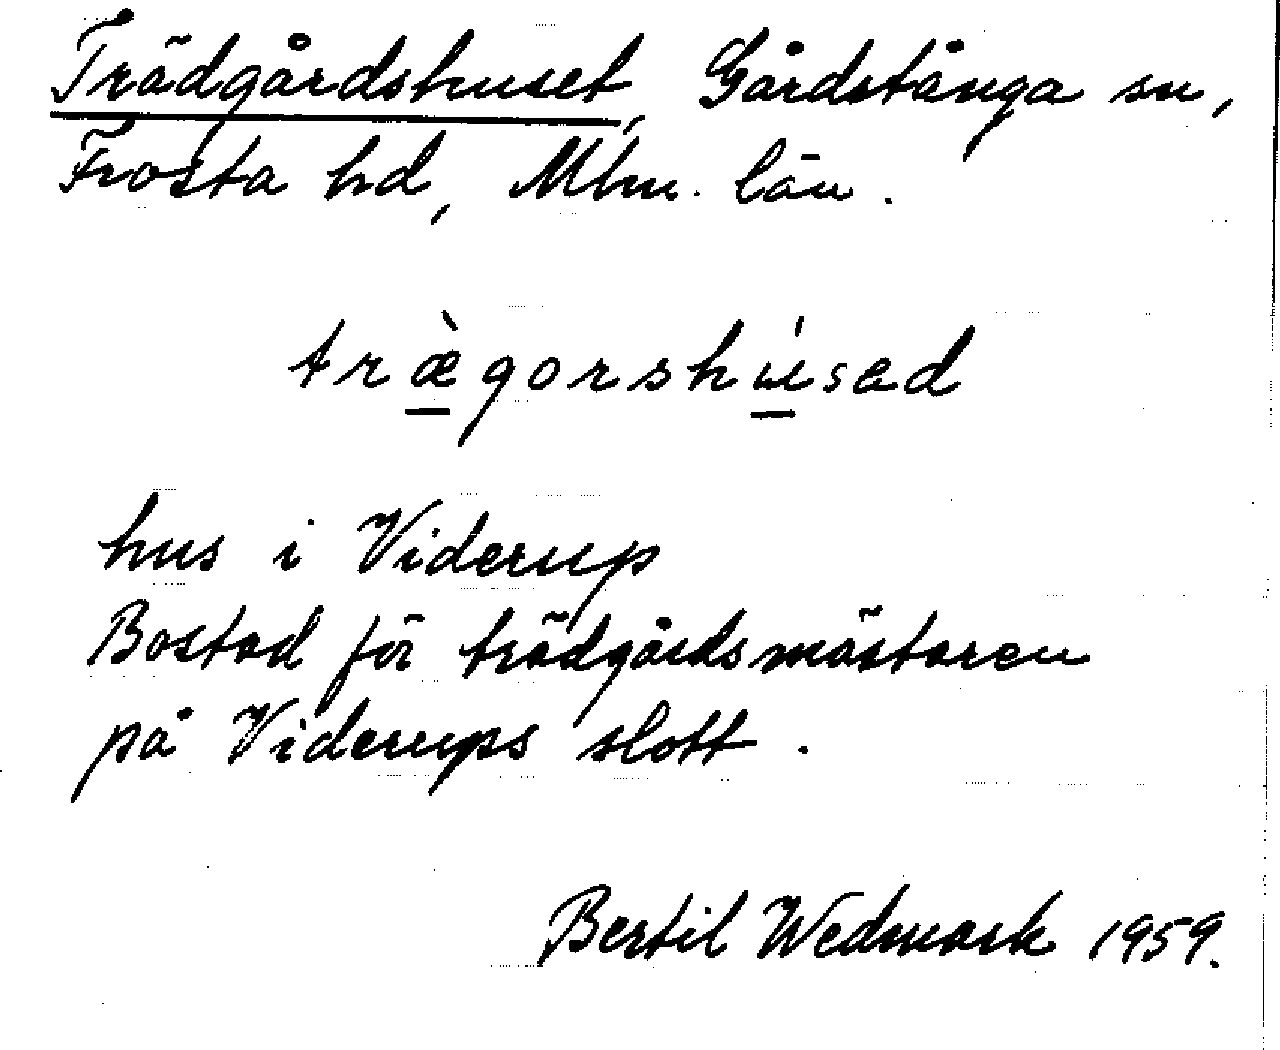 Trädgårdshuset, Gårdstånga sn,
Frosta hd, Mlm. län.
træ̀gorshúsad
hus i Viderup
Bostad för trädgårdsmästaren
på Viderups slott.
Bertil Wedmark 1959.